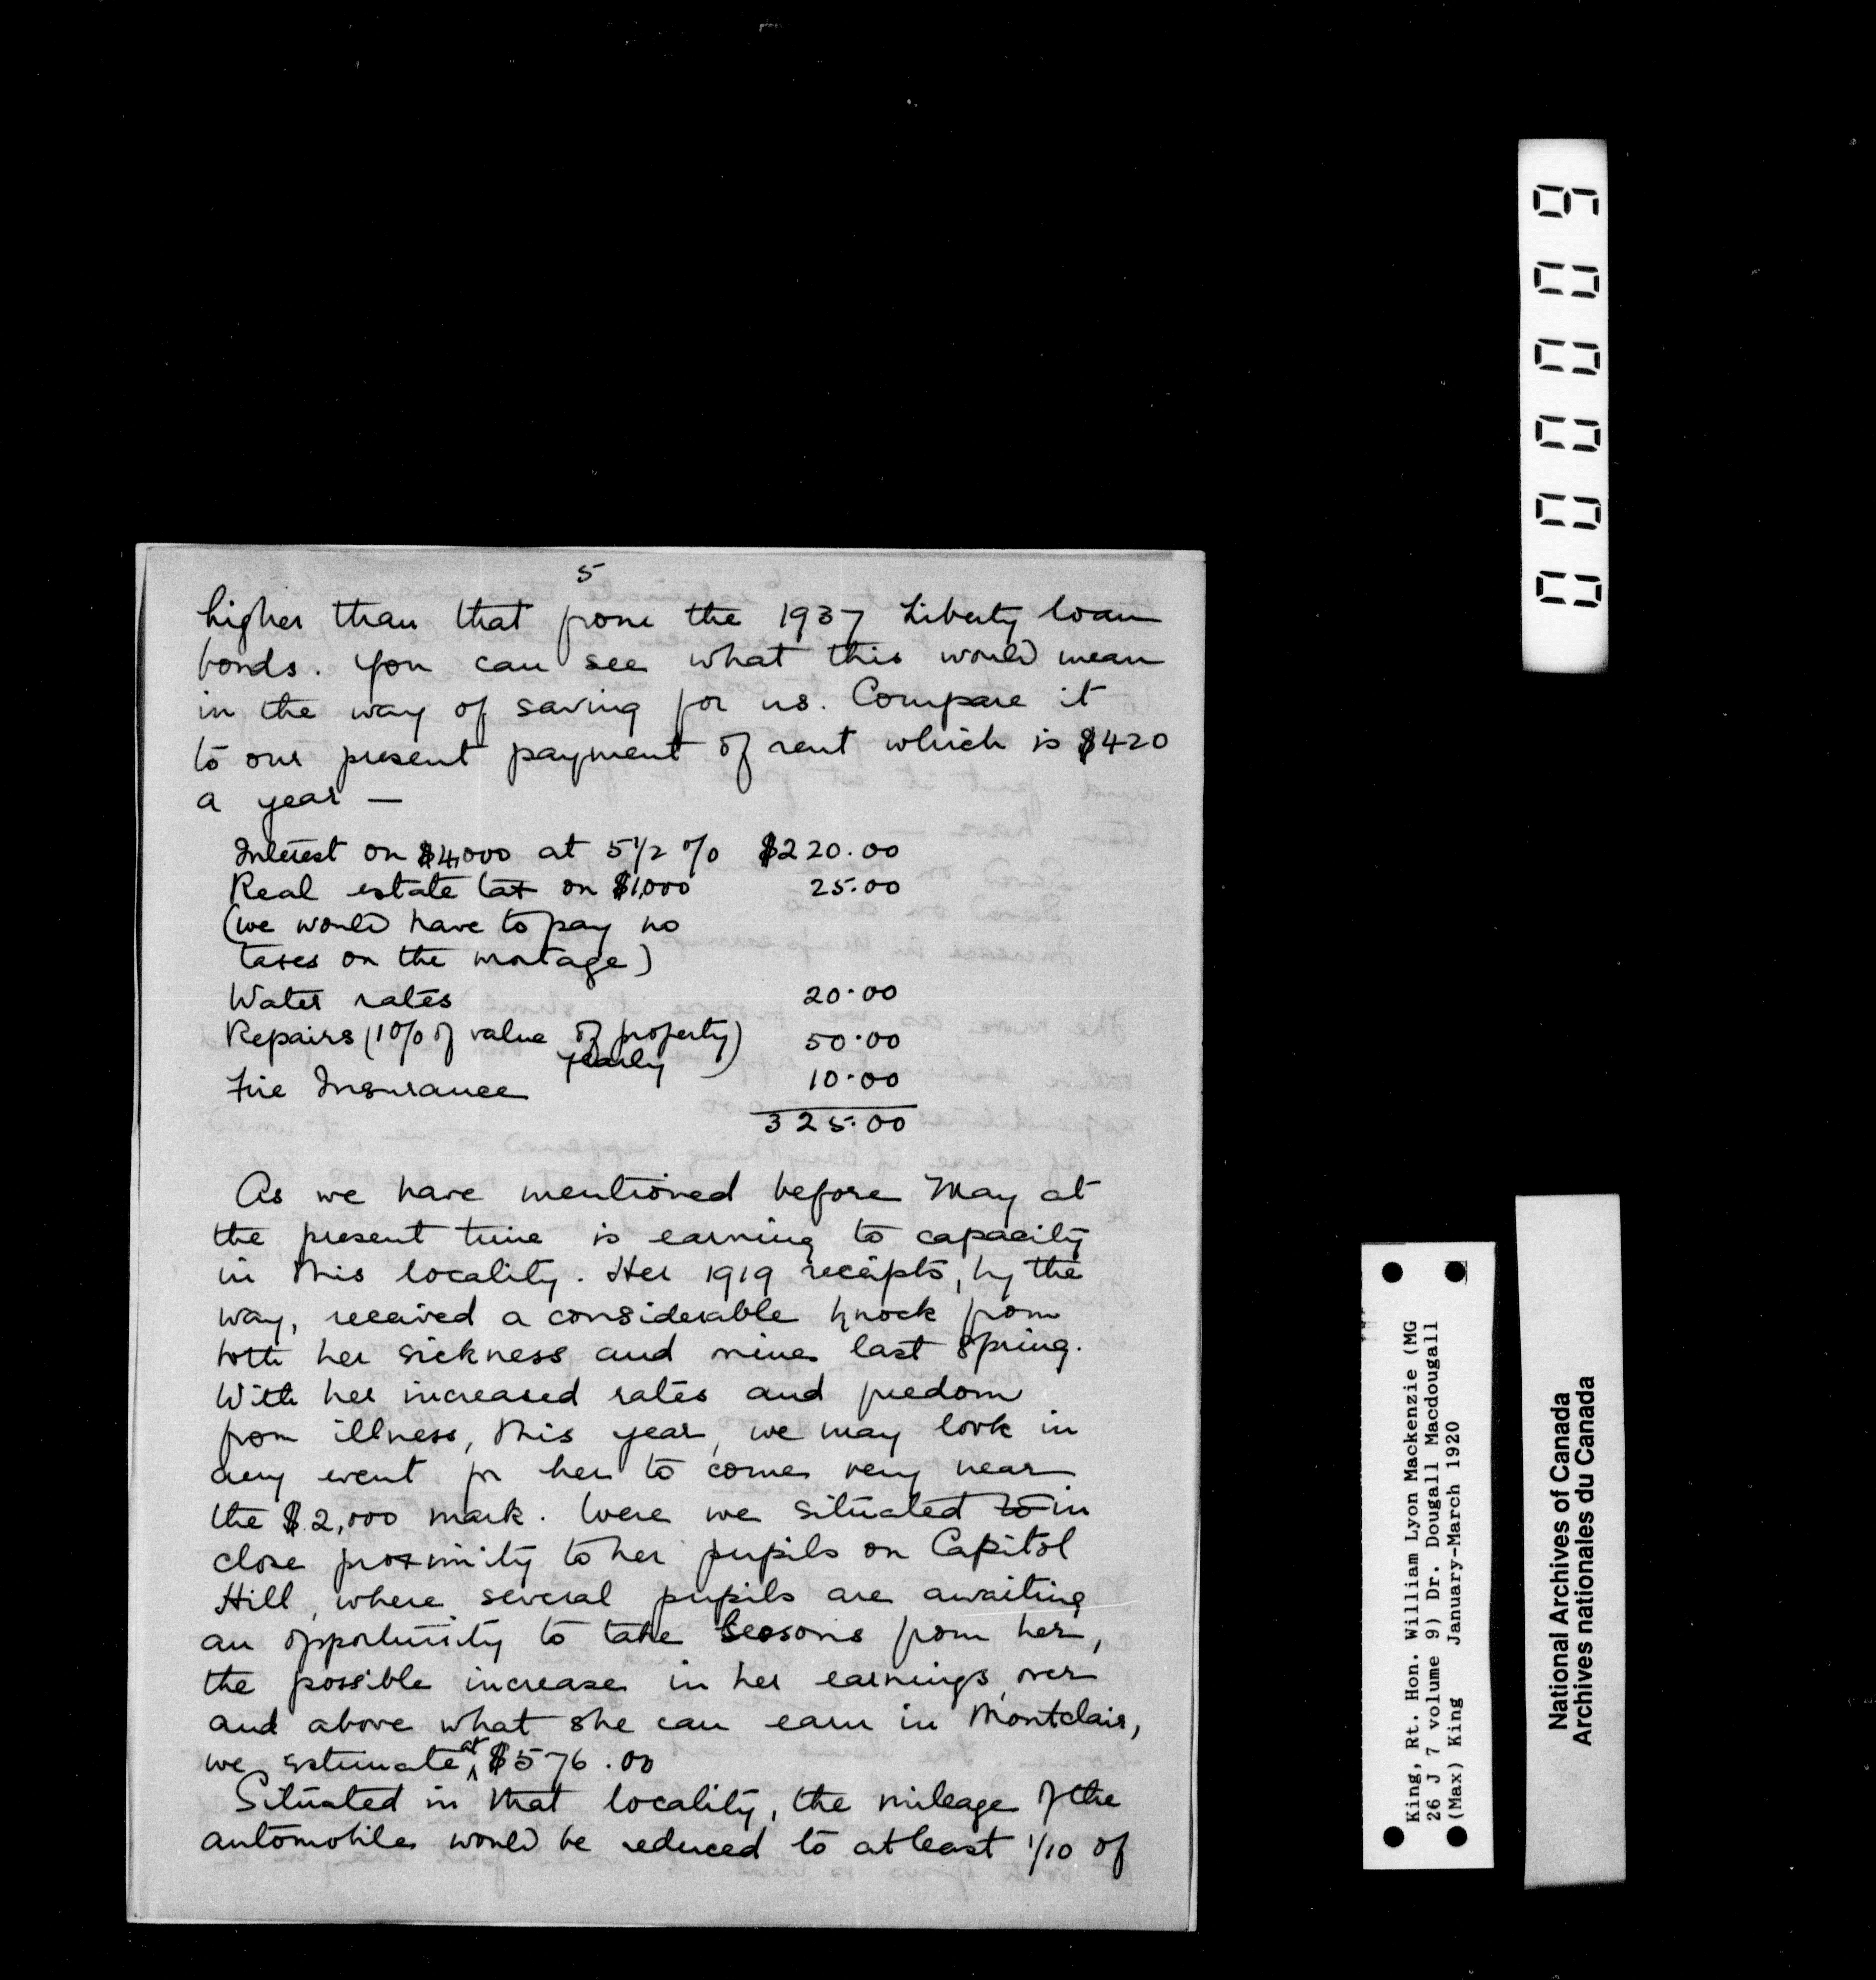 5
higher than that from the 1937 Liberty loan
bonds. You can see what this would mean
in the way of saving for us. Compare it
to our present payment of rent which is $420
a year —
Interest on $4,000 at 5 1/2 % $220.00
Real estate tax on $1,000 25.00
(we would have to pay no
taxes on the mortage)
Water rates 20.00
Repairs (1% of value of property) 50.00
yearly
Fire Insurance 10.00
325.00
As we have mentioned before May at
the present time is earning to capacity
in this locality. Her 1919 receipts, by the
way, received a considerable knock from
both her sickness and mine last spring.
With her increased rates and freedom
from illness, this year, we may look in
any event for her to come very near
the $2,000 mark. Were we situated to in
close proximity to her pupils on Capitol
Hill, where several pupils are awaiting
an opportunity to take lessons from her,
the possible increase in her earnings, over
and above what she can earn in Montclair,
we estimate at $576.00
Situated in that locality, the mileage of the
automobile would be reduced to at least 1/10 of
000009
King, Rt. Hon. William Lyon Mackenzie (MG
26 J 7 volume 9) Dr. Dougall Macdougall
(Max) King January-March 1920
National Archives of Canada
Archives nationales du Canada